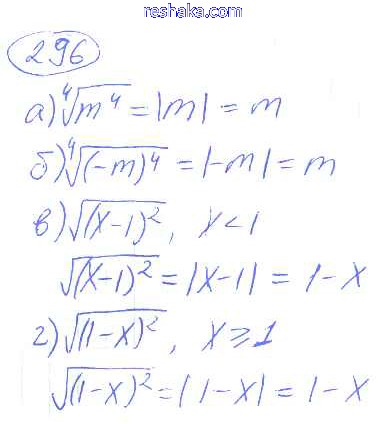 reshaka.com
296
а) ⁴√m⁴ = |m| = m
б) ⁴√(-m)⁴ = |-m| = m
в) √(x-1)², x<1
√(x-1)² = |x-1| = 1-x
г) √(1-x)², x⩾1
√(1-x)² = |1-x| = 1-x